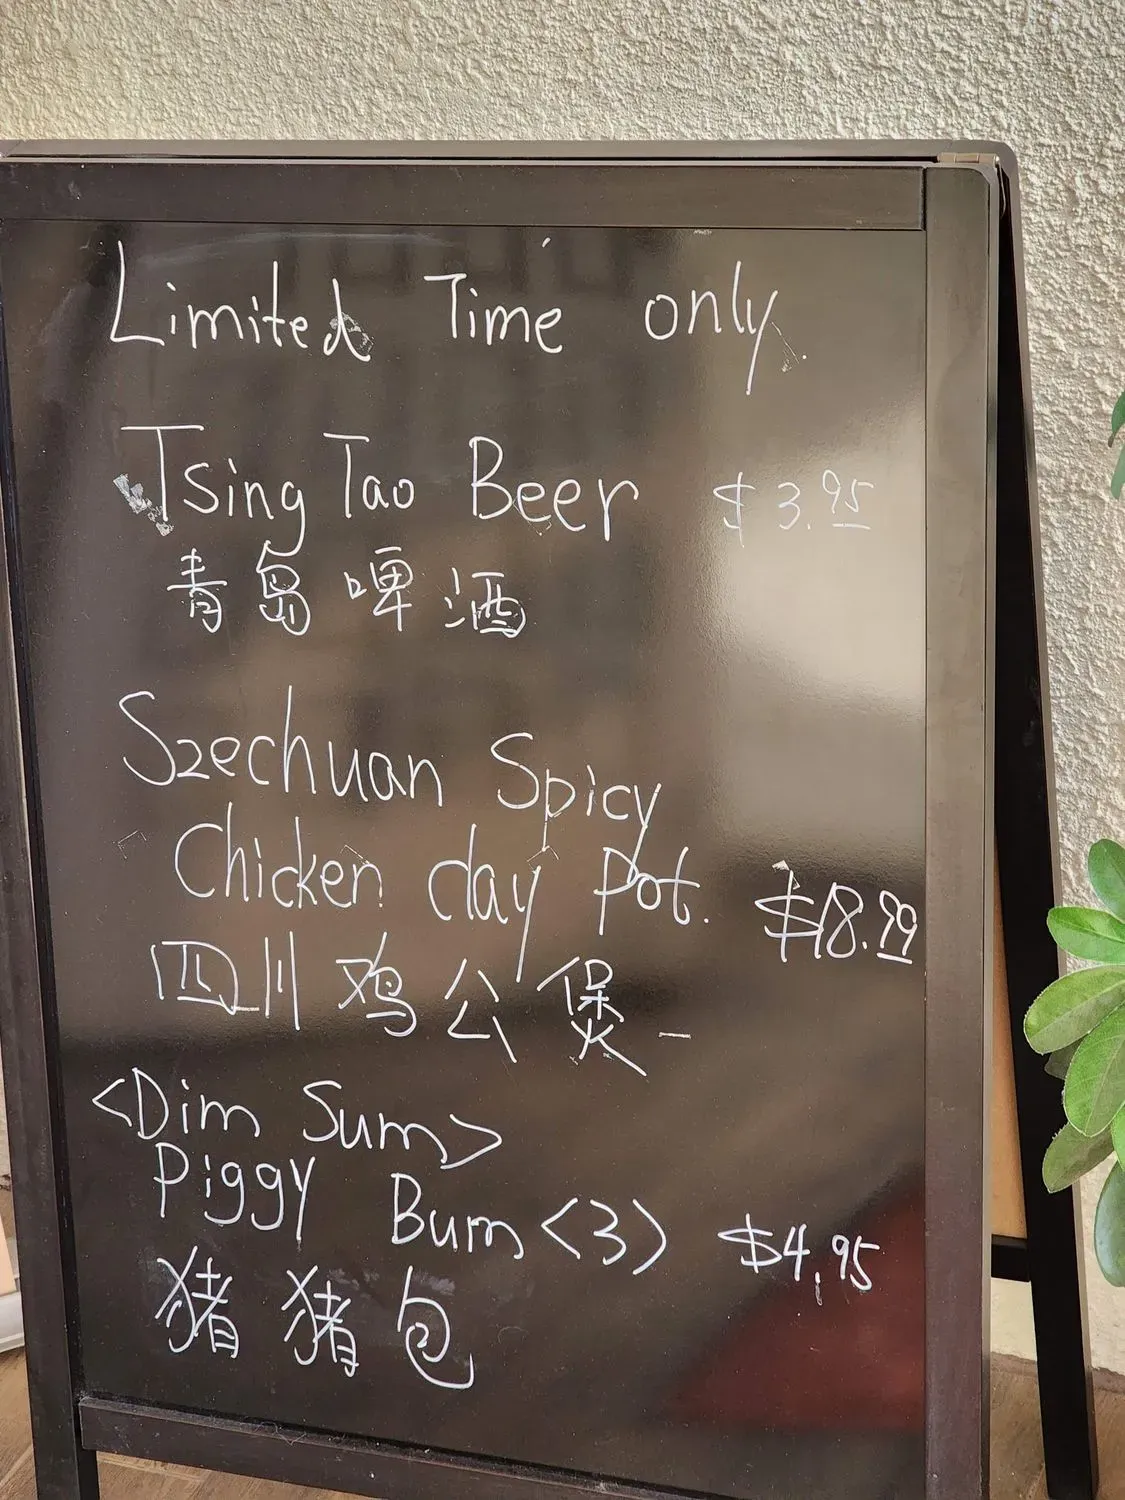 Limited Time only
Tsing Tao Beer $3.95
青岛啤酒
Szechuan Spicy
Chicken clay pot. $18.99
四川鸡公煲
<Dim Sum>
Piggy Bum <3> $4.95
猪猪包